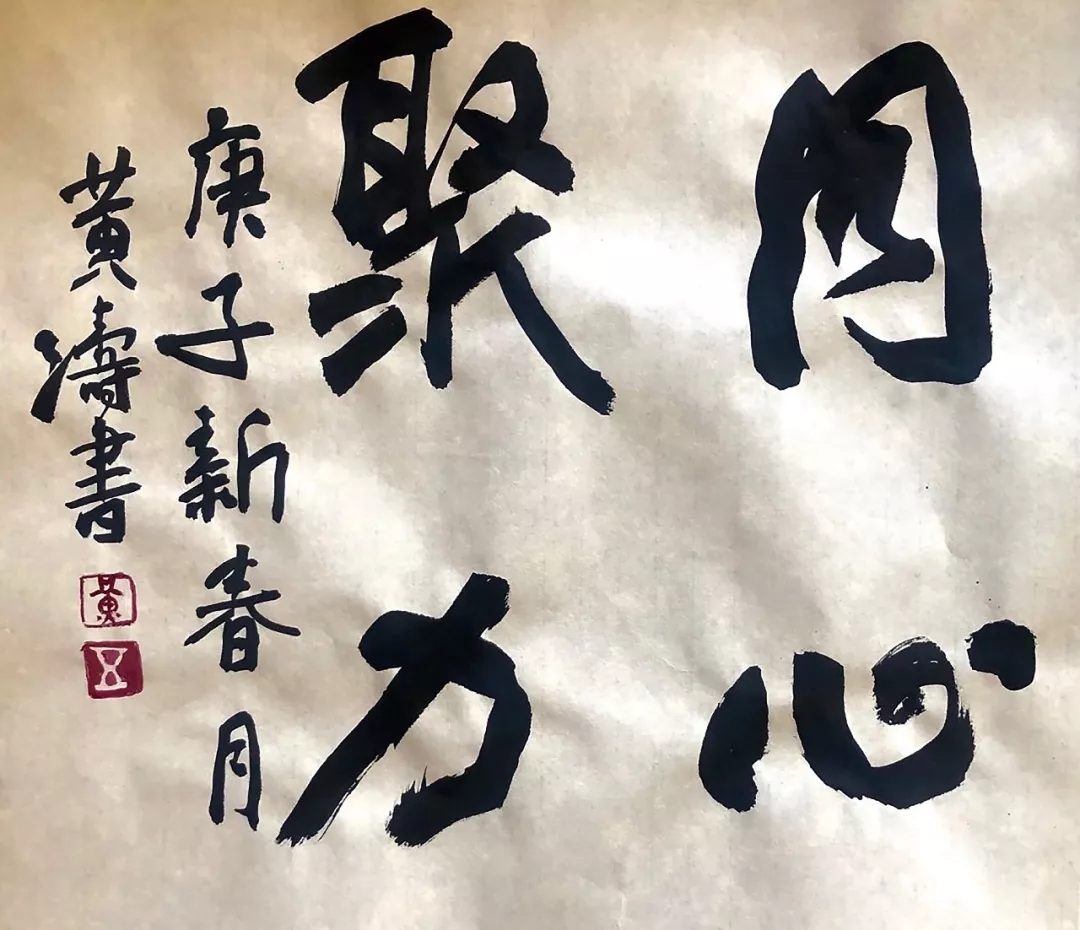 同心
聚力
庚子新春月
黄濤書
黄
五